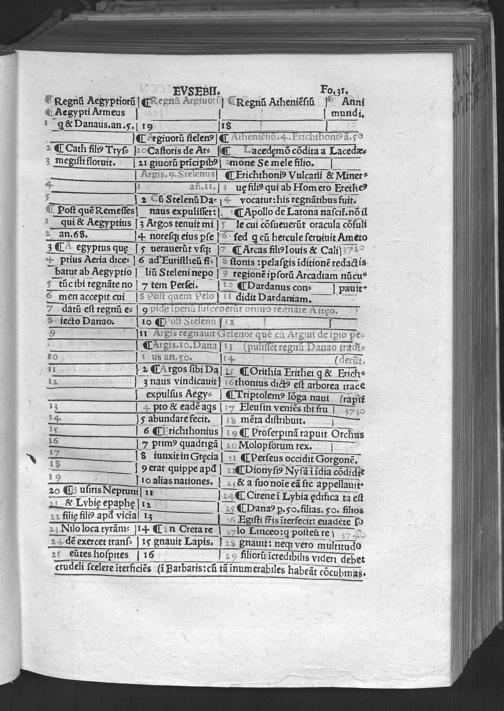 EVSEBII. Fo.31.
¶Regnū Aegyptiorū ¶Regnū Argiuorū ¶Regnū Atheniēsiū ¶ Anni
¶Aegypti Armeus mundi.
1 q & Danaus.an.5. 19 18
¶Argiuorū stelenꝰ ¶Atheniēsiū.4.Erichthoniꝰ a.50
2 ¶Cath filiꝰ Tryſ- 20 Castoris de Ar- ¶ Lacedęmō cōdita a Lacedæ-
3 megisti floruit. 21 giuorū prīcipibꝰ 2 mone Semele filio.
Argis.9.Stelenus ¶Erichthoniꝰ Vulcani & Miner-
4 1 añ.11. 3 uę filiꝰ qui ab Homero Erethe⁹
5 2 Cū Stelenū Da- 4 vocatur: his regnātibus fuit.
¶Post quē Remesses naus expulisset: ¶Apollo de Latona nascit. nō il
1 qui & Aegyptius 3 Argos tenuit mi 5 le cui cōsueuerūt oracula cōsuli
2 an.68. 4 noresq eius pse 6 sed q cū hercule seruiuit Ameto
3 ¶Aegyptus que 5 uerauerūt vsq 7 ¶Arcas filiꝰ Iouis & Cali 3720
4 ptius Aeria dice- 6 ad Euristheū fi- 8 stonis : pelasgis ī ditionē redactis
batur ab Aegyptio liū Steleni nepo 9 regionē ipsorū Arcadiam nūcu-
5 tūc ibi regnāte no 7 tem Persei. 10 ¶Dardanus con- pauit-
6 men accepit cui 8 Post quem Pelo 11 didit Dardaniam.
7 datū est regnū e- 9 pide
8 iecto Danao. 10 ¶Post Stelenū 12
9 11 Argis regnauit Gelenor quē cū Argiui de ipso pe-
¶Argis.10.Dana 13 (pulisset regnū Danao tradi-
10 1 us an.50. 14 (derūt.
11 2 ¶Argos sibi Da 15 ¶Orithia Erithei q & Erich-
12 3 naus vindicauit 16 thonius dictꝰ est arborea trace
expulsus Aegy- ¶Triptolemꝰ lōga naui (rapit
13 4 pto & eadē aqs 17 Eleusin veniēs ibi fru 3730
14 5 abundare fecit. 18 mēta distribuit.
15 6 ¶Erichthonius 19 ¶Proserpinā rapuit Orchus
16 7 primꝰ quadrigā 20 Molopsorum rex.
17 8 iunxit in Gręcia 21 ¶Perseus occidit Gorgonē.
18 9 erat quippe apd 22 ¶Dionysꝰ Nysā ī īdia cōdidit
19 10 alias nationes. 23 & a suo noīe eā sic appellauit-
20 ¶Busiris Neptuni 11 24 ¶Cirene ī Lybia edifica ta est
21 & Lybię epaphe 12 25 ¶Danaꝰ p.50.filias.50.filios
22 filię filiꝰ apd vicīa 13 26 Egisti fris īterfecit: euadēte so
23 Nilo loca tyrānis 14 ¶In Creta re 27 lo Linceo: q posteū re
24 dē exercet transf- 15 gnauit Lapis. 28 gnauit: neqȝ vero multitudo
25 eūtes hospites 16 29 filiorū īcredibilis videri debet
crudeli scelere iterficiēs (ī Barbaris: cū tā inumerabiles habeāt cōcubinas.